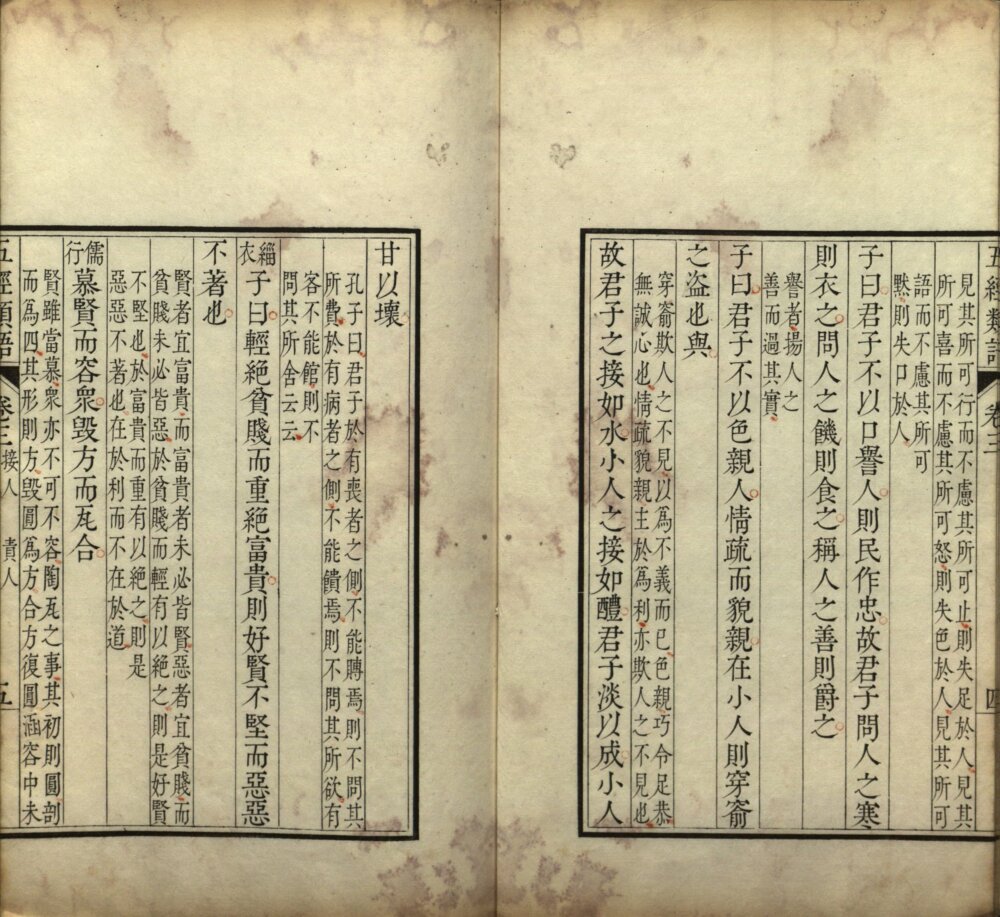 五經類語
卷三
四
見其所可行而不慮其所可止則失足於人見其
所可喜而不慮其所可怒則失色於人見其所可
語而不慮其所可
默則失口於人
子曰君子不以口譽人則民作忠故君子問人之寒
則衣之問人之饑則食之稱人之善則爵之
譽者揚人之
善而過其實
子曰君子不以色親人情疏而貌親在小人則穿窬
之盜也與
穿窬欺人之不見以為不義而已色親巧令足恭
無誠心也情疏貌親主於為利亦欺人之不見也
故君子之接如水小人之接如醴君子淡以成小人
甘以壞
孔子曰君子於有喪者之側不能賻焉則不問其
所費於有病者之側不能饋焉則不問其所欲有
客不能館則不
問其所舍云云
緇衣
子曰輕絕貧賤而重絕富貴則好賢不堅而惡惡
不著也
賢者宜富貴而富貴者未必皆賢惡者宜貧賤而
貧賤未必皆惡於貧賤而輕有以絕之則是好賢
不堅也於富貴而重有以絕之則是
惡惡不著也在於利而不在於道
儒行
慕賢而容眾毀方而瓦合
賢雖當慕眾亦不可不容陶瓦之事其初則圓剖
而為四其形則方毀圓為方合方復圓涵容中未
五經類語
卷三
接人
責人
五